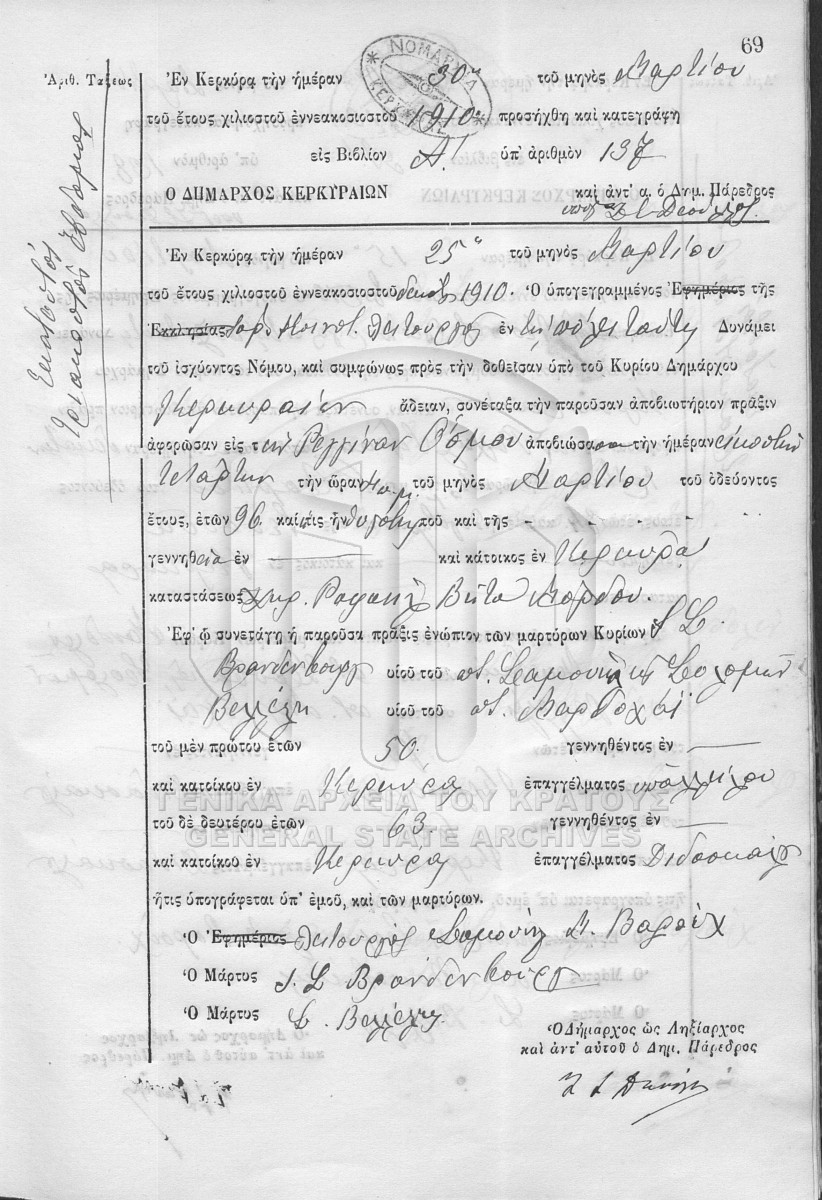 69
Ἀριθ. Τάξεως
Ἑκατοστὸς
Τριακοστὸς Ἕβδομος
ΝΟΜΑΡΧΙΑ
ΚΕΡΚΥΡΑΣ
Ἐν Κερκύρᾳ τὴν ἡμέραν 30ην τοῦ μηνὸς Μαρτίου
τοῦ ἔτους χιλιοστοῦ ἐννεακοσιοστοῦ 1910 προσήχθη καὶ κατεγράφη
εἰς Βιβλίον Α! ὑπ' ἀριθμὸν 137
Ο ΔΗΜΑΡΧΟΣ ΚΕΡΚΥΡΑΙΩΝ καὶ ἀντ' α. ὁ Δημ. Πάρεδρος
Ἐν Κερκύρᾳ τὴν ἡμέραν 25ην τοῦ μηνὸς Μαρτίου
τοῦ ἔτους χιλιοστοῦ ἐννεακοσιοστοῦ δεκάτου 1910. Ὁ ὑπογεγραμμένος Ἐφημέριος τῆς
Ἐκκλησίας Λειτουργὸς ἐν τῇ πόλει ταύτῃ Δυνάμει
τοῦ ἰσχύοντος Νόμου, καὶ συμφώνως πρὸς τὴν δοθεῖσαν ὑπὸ τοῦ Κυρίου Δημάρχου
Κερκυραίων ἄδειαν, συνέταξα τὴν παροῦσαν ἀποβιωτήριον πρᾶξιν
ἀφορῶσαν εἰς τὴν Ρεγγίναν Ὄσμου ἀποβιώσασαν τὴν ἡμέραν εἰκοστὴν
τετάρτην τὴν ὥραν π.μ. τοῦ μηνὸς Μαρτίου τοῦ ὁδεύοντος
ἔτους, ἐτῶν 96 καὶ τις ἦν θυγάτηρ τοῦ καὶ τῆς - - - -
γεννηθεῖσα ἐν — καὶ κάτοικος ἐν Κερκύρᾳ
καταστάσεως χηρ. Ραφαὴλ Βίτα Μόρδου.
Ἐφ' ᾧ συνετάγη ἡ παροῦσα πρᾶξις ἐνώπιον τῶν μαρτύρων Κυρίων I. L.
Βρανδεμβουργ υἱοῦ τοῦ ποτ. Σαμουὴλ καὶ Σολομὼν
Βελλέλη υἱοῦ τοῦ ποτ. Μαρδοχάι
τοῦ μὲν πρώτου ἐτῶν 50. γεννηθέντος ἐν —
καὶ κατοίκου ἐν Κερκύρᾳ ἐπαγγέλματος ὑπαλλήλου
ΓΕΝΙΚΑ ΑΡΧΕΙΑ ΤΟΥ ΚΡΑΤΟΥΣ
τοῦ δὲ δευτέρου ἐτῶν 63. γεννηθέντος ἐν —
GENERAL STATE ARCHIVES
καὶ κατοίκου ἐν Κερκύρᾳ ἐπαγγέλματος Διδασκάλου
ἥτις ὑπογράφεται ὑπ' ἐμοῦ, καὶ τῶν μαρτύρων.
Ὁ Ἐφημέριος Λειτουργὸς Σαμουὴλ Βαρούχ
Ὁ Μάρτυς I. L. Βρανδεμβουργ
Ὁ Μάρτυς Σ. Βελλέλης
Ὁ Δήμαρχος ὡς Ληξίαρχος
καὶ ἀντ' αὐτοῦ ὁ Δημ. Πάρεδρος